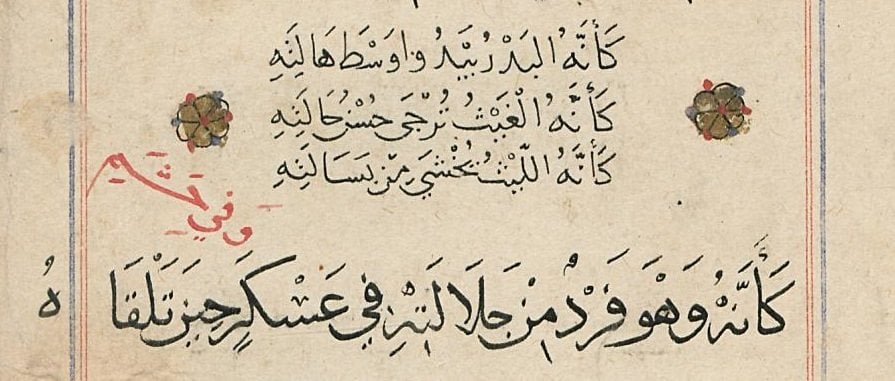 كَأَنَّهُ البَدْرُ يَبْدُو اوَسْطَ هَالَتِهِ
كَأَنَّهُ الْغَيْثُ تُرْجَى حُسْنُ حَالَتِهِ
كَأَنَّهُ اللَّيْثُ يُخْشَى مِنْ بَسَالَتِهِ
كَأَنَّهُ وَهْوَ فَرْدٌ مِنْ جَلَالَتِهِ فِي عَسْكَرٍ حِينَ تَلْقَاهُ
وَفِي حَشَمِ